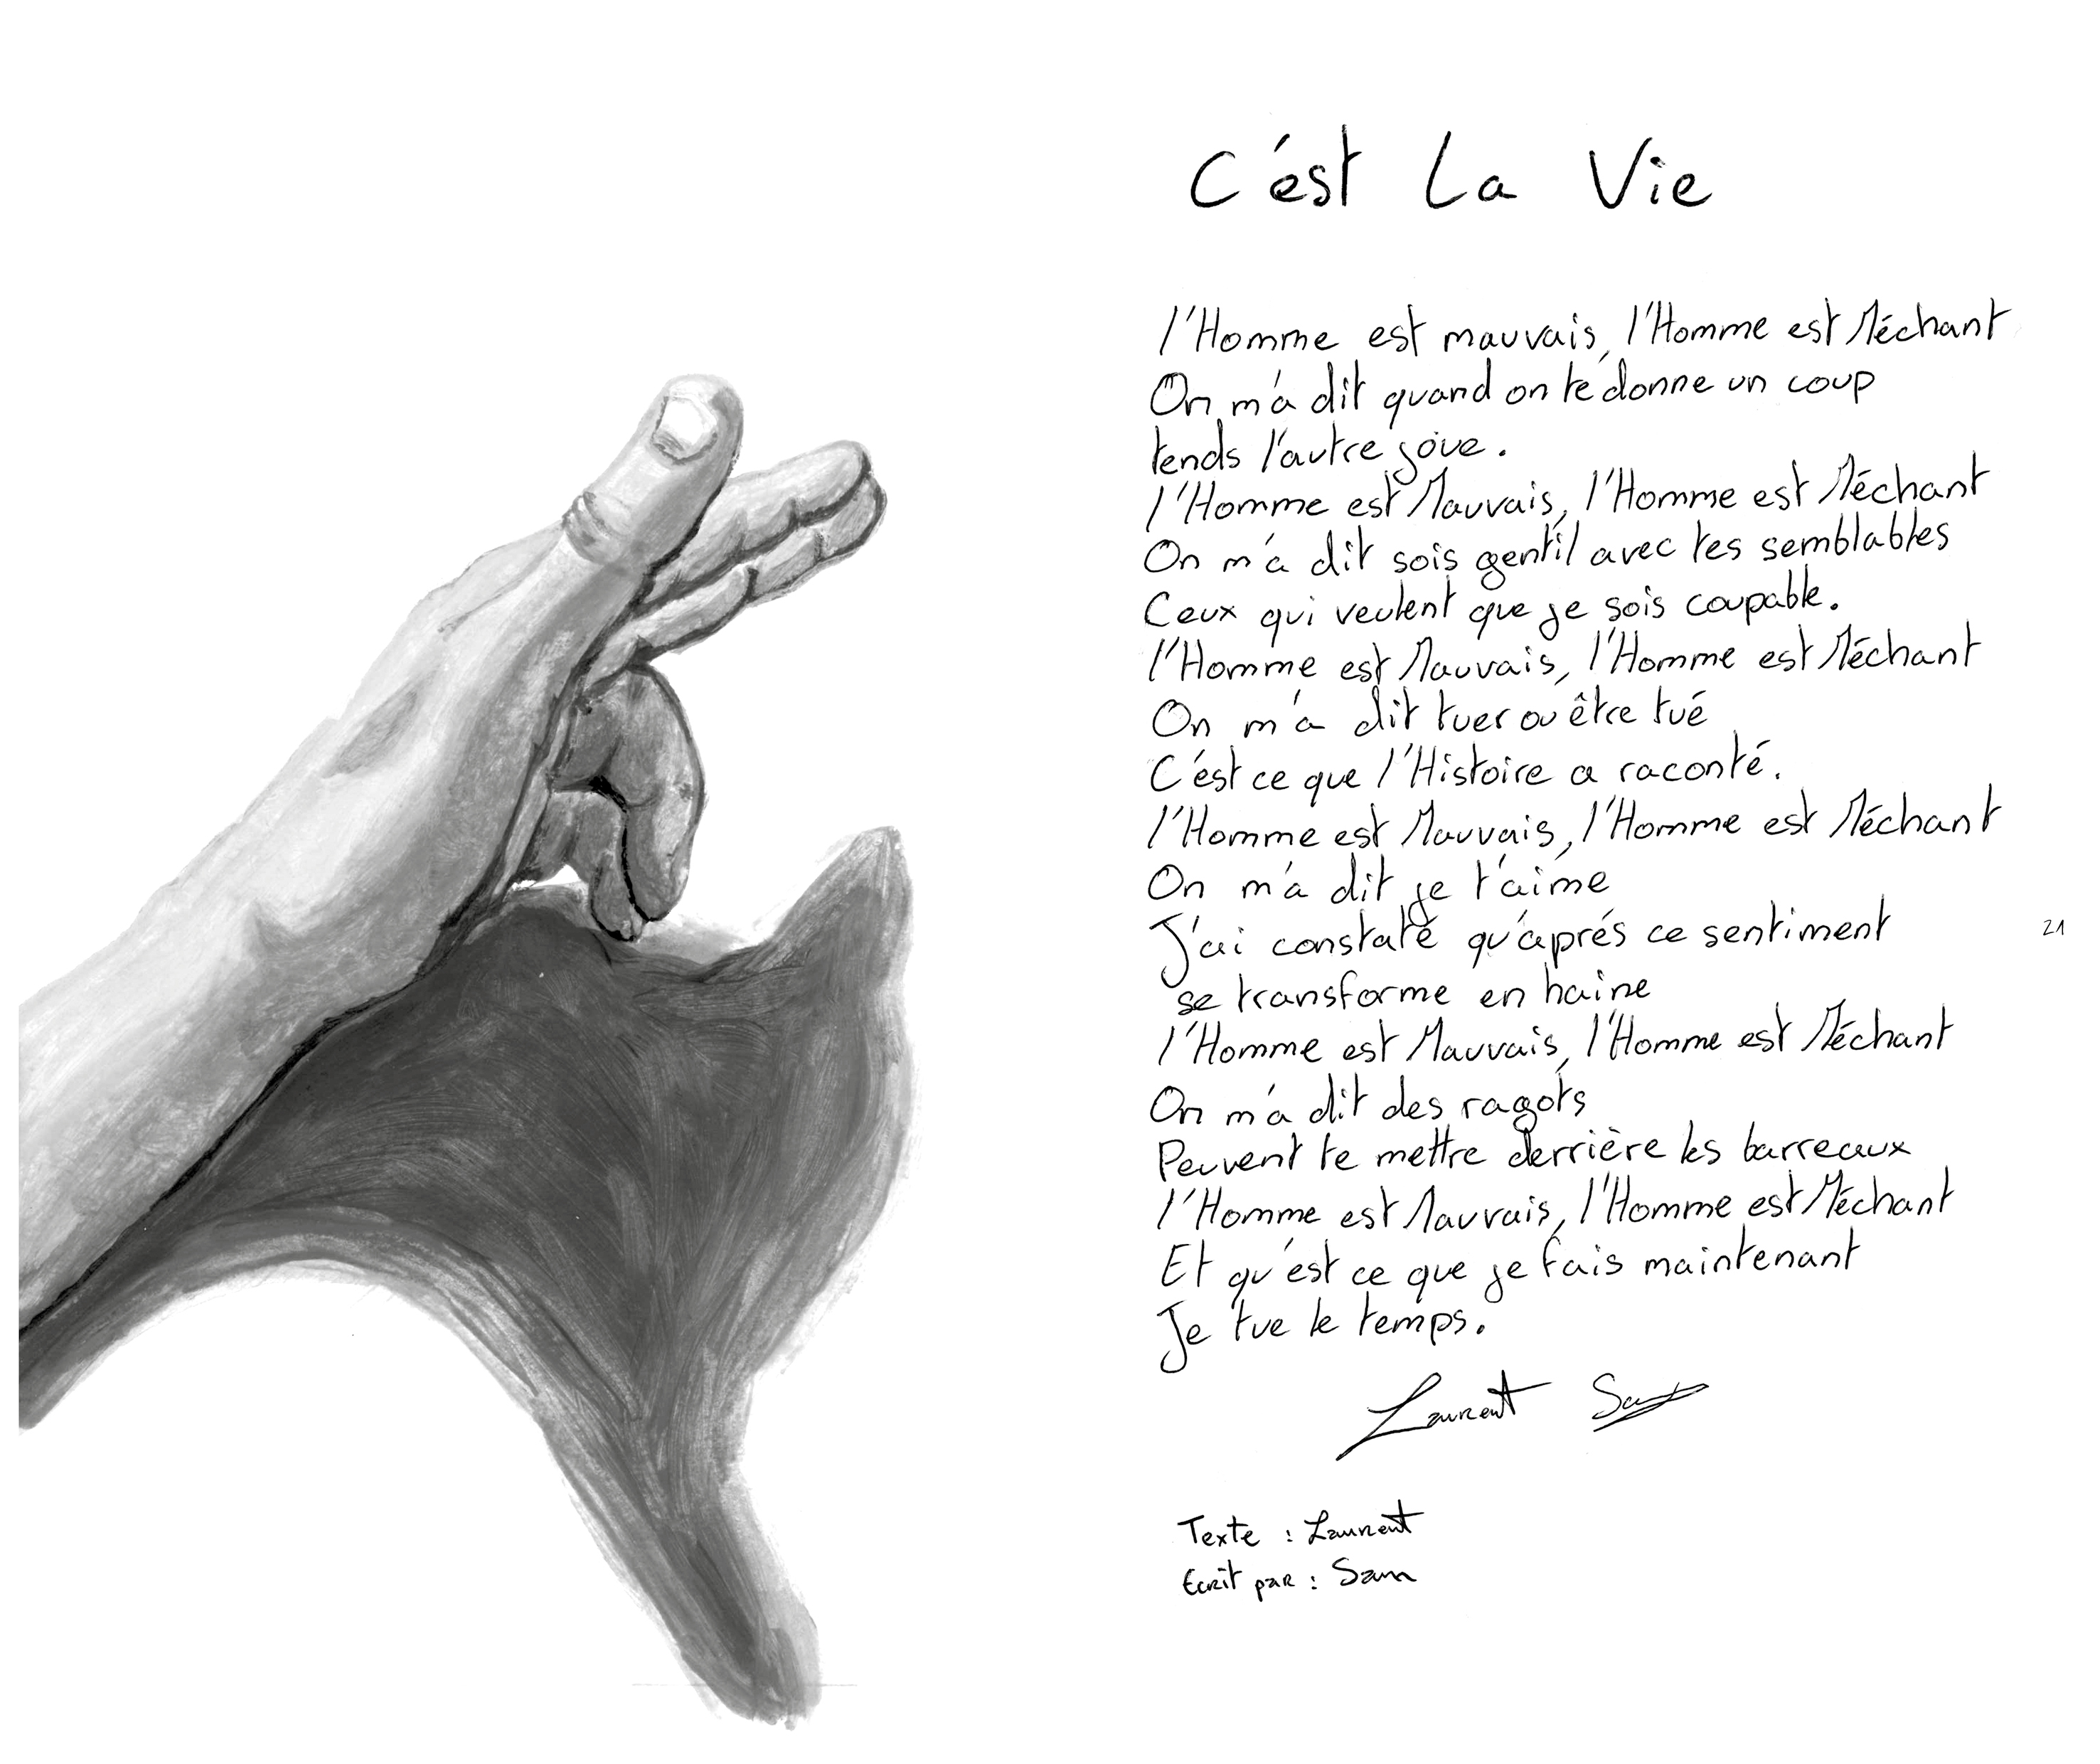 C'est La Vie
l'Homme est mauvais, l'Homme est Méchant
On m'a dit quand on te donne un coup
tends l'autre joue.
l'Homme est Mauvais, l'Homme est Méchant
On m'a dit sois gentil avec tes semblables
Ceux qui veulent que je sois coupable.
l'Homme est Mauvais, l'Homme est Méchant
On m'a dit tuer ou être tué
C'est ce que l'Histoire a raconté.
l'Homme est Mauvais, l'Homme est Méchant
On m'a dit je t'aime
J'ai constaté qu'aprés ce sentiment
se transforme en haine
l'Homme est Mauvais, l'Homme est Méchant
On m'a dit des ragots
Peuvent te mettre derrière les barreaux
l'Homme est Mauvais, l'Homme est Méchant
Et qu'est ce que je fais maintenant
Je tue le temps.
Laurent Sam
Texte : Laurent
Ecrit par : Sam
21